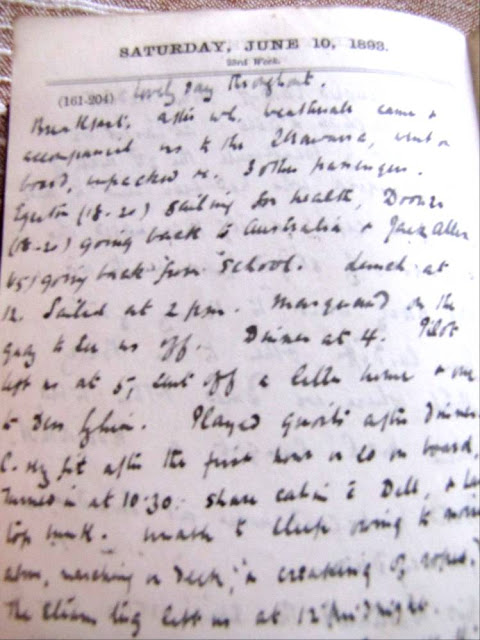 SATURDAY, JUNE 10, 1893.
23rd Week.
(161-204) Lovely Day throughout.
Breakfast, after wh. came &
accompanied us to the went on
board, unpacked &c. 3 other passengers.
Egerton (18-20) Sailing for health,
(18-20) going back to Australia & Jack Allen
(15) going back from School. Lunch at
12. Sailed at 2 pm. on the
quay to see us off. Dinner at 4. Pilot
left us at 5, sent off a letter home & one
to Played quoits after Dinner
C. fit after the first hour or so on board,
Turned in at 10.30. Share cabin & Dell, &
top bunk. to sleep owing to noise
above, marching on Deck, & creaking of ropes.
The steam tug left us at 12 midnight.